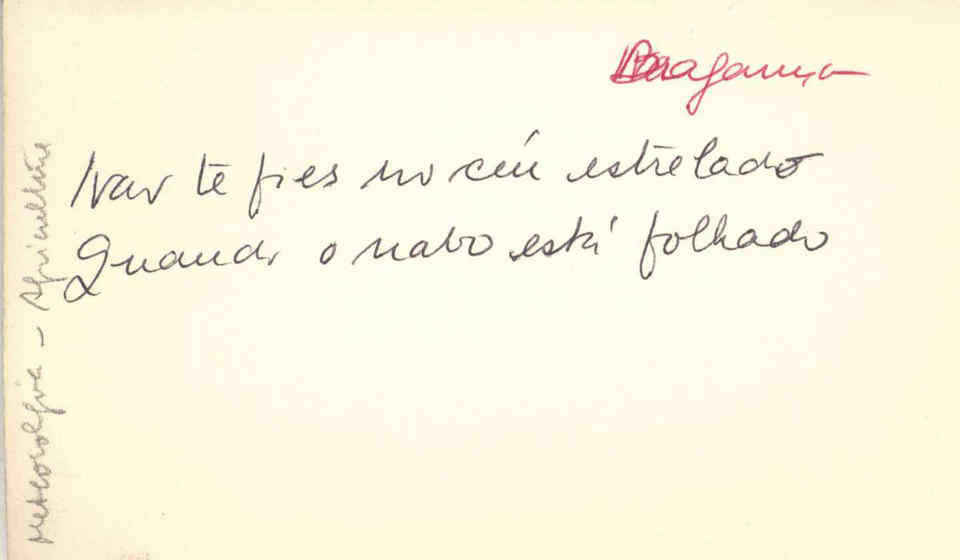 Bragança
Não te fies no céu estrelado
Quando o nabo está folhado
Meteorologia - Agricultura